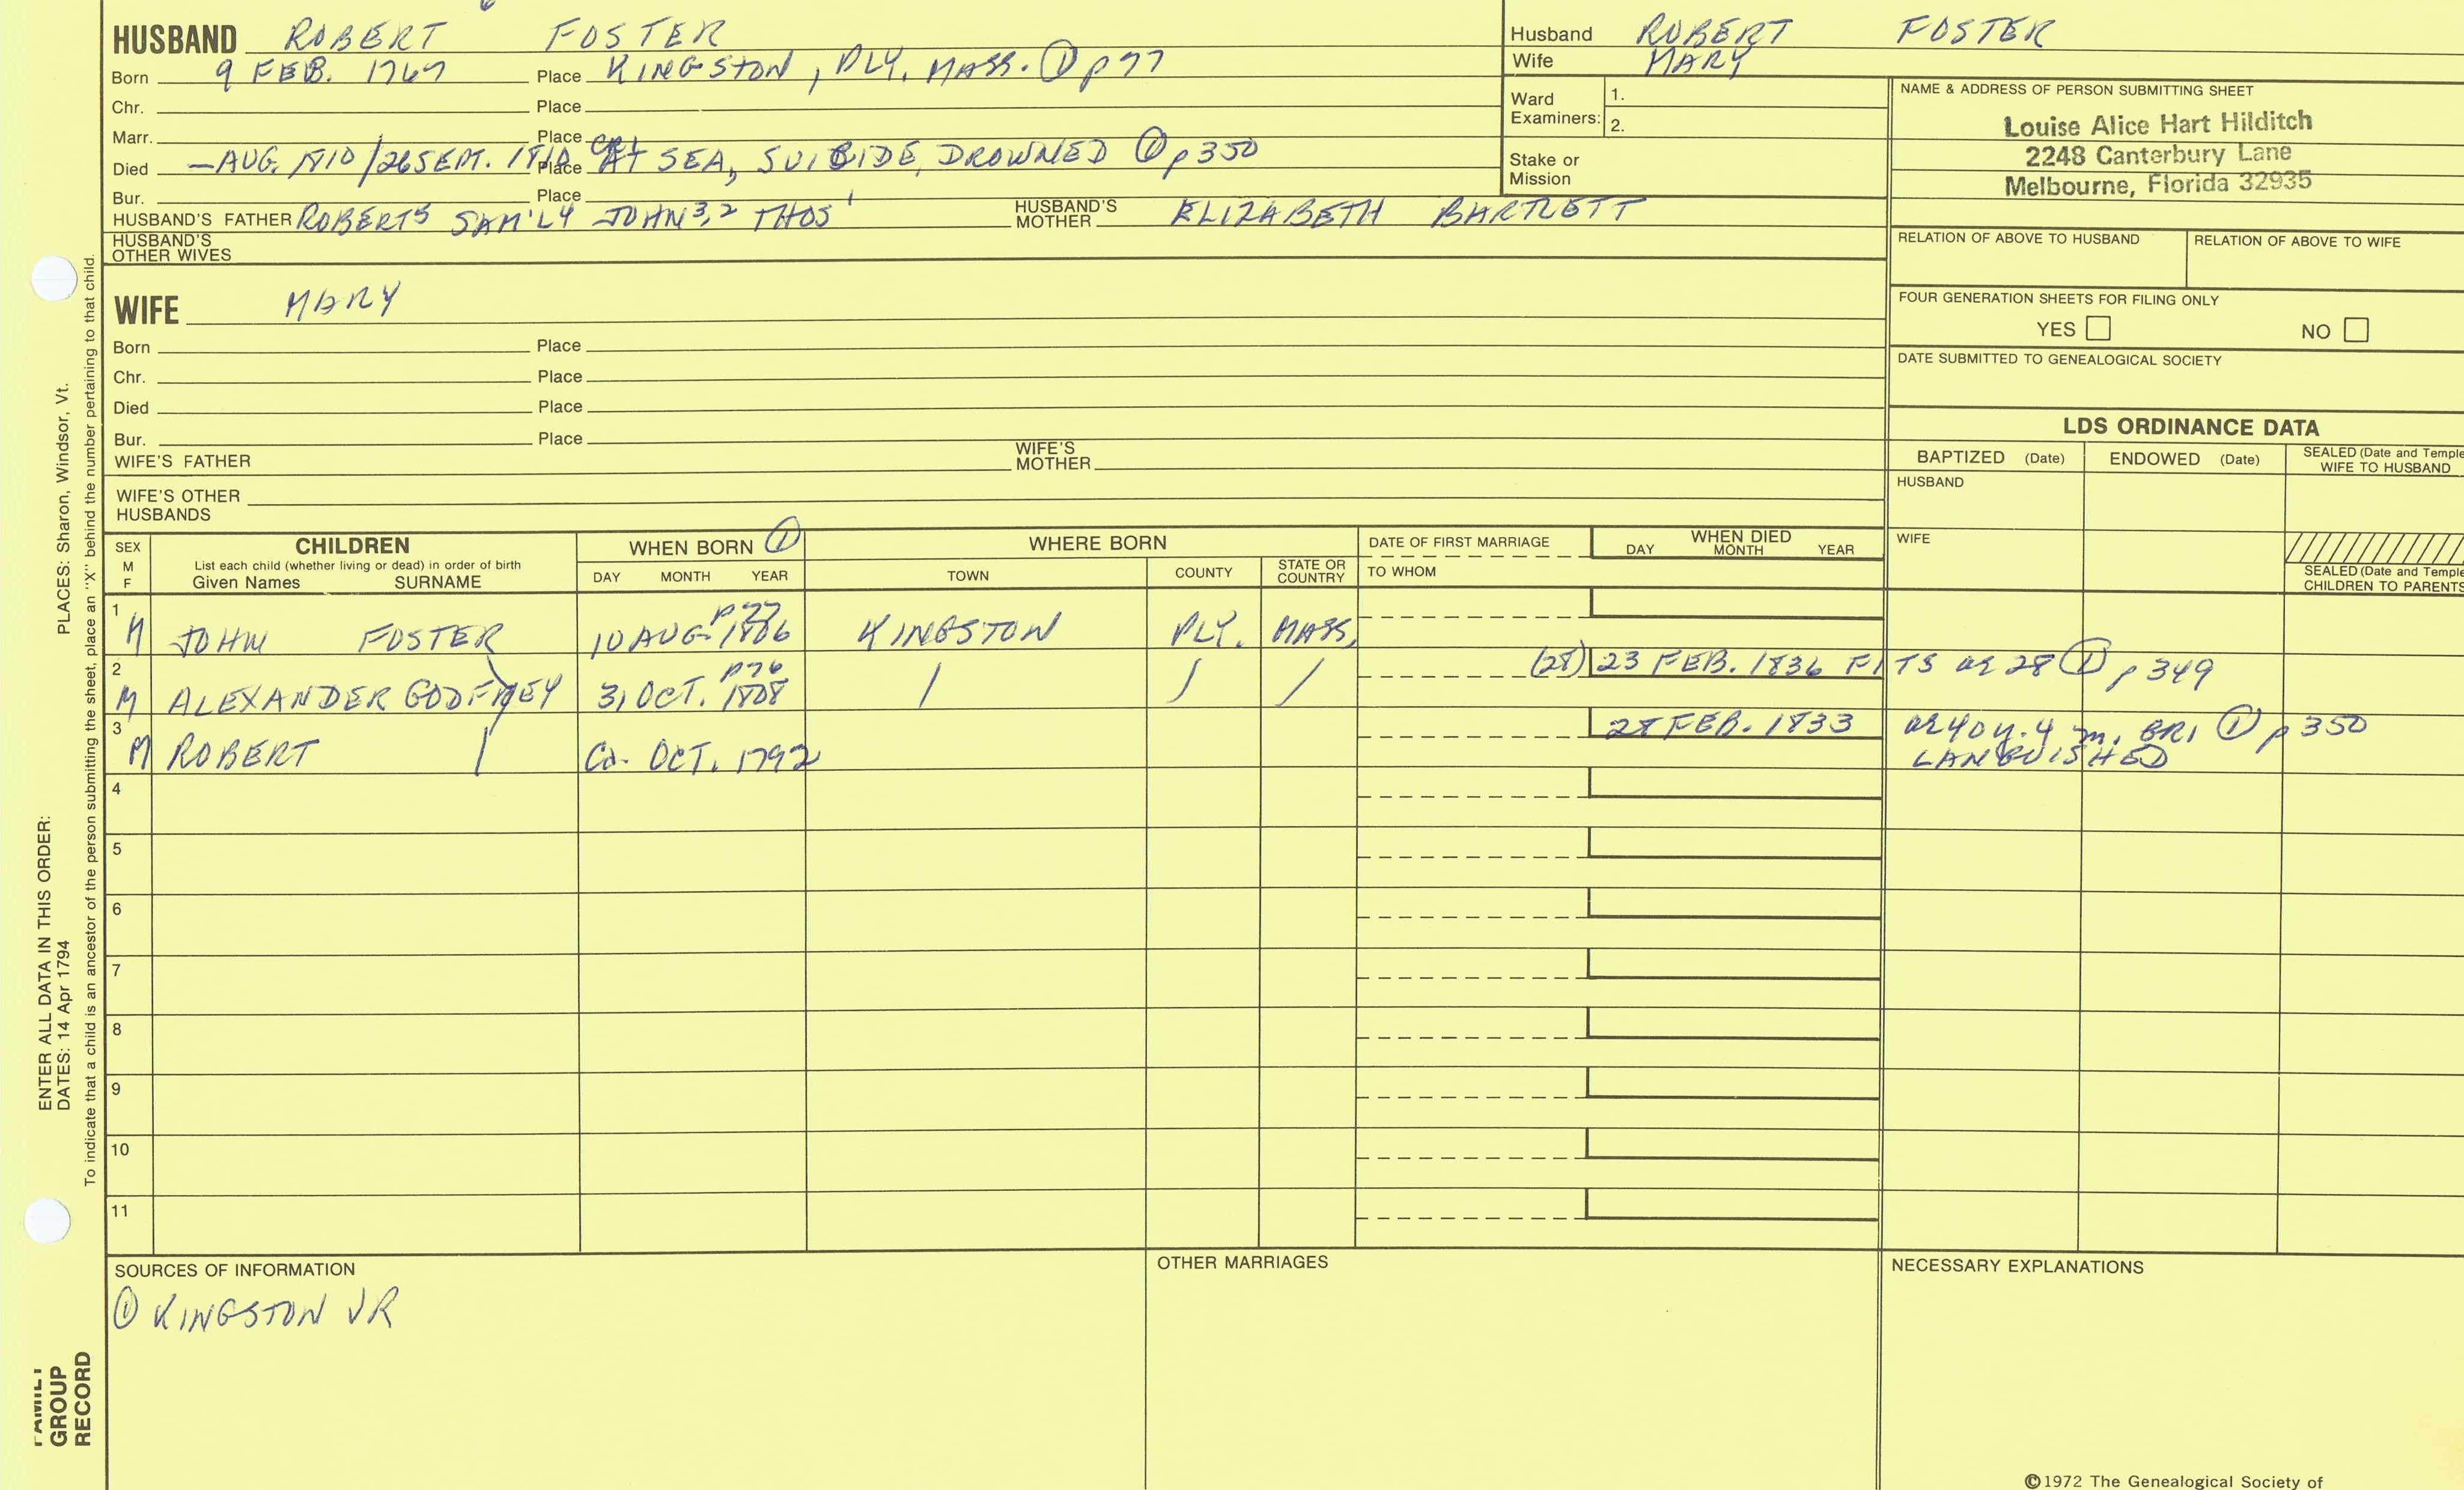 HUSBAND ROBERT FOSTER
Born 9 FEB. 1767 Place KINGSTON, PLY. MASS. ① p 77
Chr. Place
Marr. Place
Died —AUG. 1810/26 SEPT. 1810 Place GR1 AT SEA, SUICIDE, DROWNED ① p 350
Bur. Place
HUSBAND'S FATHER ROBERT5 SAM'L4 JOHN3,2 THOS1 HUSBAND'S MOTHER ELIZABETH BARTLETT
HUSBAND'S OTHER WIVES
Husband ROBERT FOSTER
Wife MARY
Ward Examiners: 1.
2.
Stake or Mission
NAME & ADDRESS OF PERSON SUBMITTING SHEET
Louise Alice Hart Hilditch
2248 Canterbury Lane
Melbourne, Florida 32935
RELATION OF ABOVE TO HUSBAND RELATION OF ABOVE TO WIFE
FOUR GENERATION SHEETS FOR FILING ONLY
YES NO
DATE SUBMITTED TO GENEALOGICAL SOCIETY
WIFE MARY
Born Place
Chr. Place
Died Place
Bur. Place
WIFE'S FATHER WIFE'S MOTHER
WIFE'S OTHER HUSBANDS
LDS ORDINANCE DATA
BAPTIZED (Date) ENDOWED (Date) SEALED (Date and Temple
WIFE TO HUSBAND
HUSBAND
WIFE
SEALED (Date and Temple
CHILDREN TO PARENTS
SEX M F CHILDREN WHEN BORN ① WHERE BORN DATE OF FIRST MARRIAGE WHEN DIED
List each child (whether living or dead) in order of birth
Given Names SURNAME DAY MONTH YEAR TOWN COUNTY STATE OR COUNTRY TO WHOM DAY MONTH YEAR
1 M JOHN FOSTER 10 AUG. 1806 p 77 KINGSTON PLY. MASS.
2 M ALEXANDER GODFREY 31 OCT. 1808 p 76 / / / (28) 23 FEB. 1836 FITS ae 28 ① p 349
3 M ROBERT / Ca. OCT. 1792 28 FEB. 1833 ae 40 y. 4 m. GR1 ① p 350
LANGUISHED
4
5
6
7
8
9
10
11
SOURCES OF INFORMATION OTHER MARRIAGES NECESSARY EXPLANATIONS
① KINGSTON VR
©1972 The Genealogical Society of
PLACES: Sharon, Windsor, Vt.
ENTER ALL DATA IN THIS ORDER:
DATES: 14 Apr 1794
To indicate that a child is an ancestor of the person submitting the sheet, place an "X" behind the number pertaining to that child.
FAMILY
GROUP
RECORD